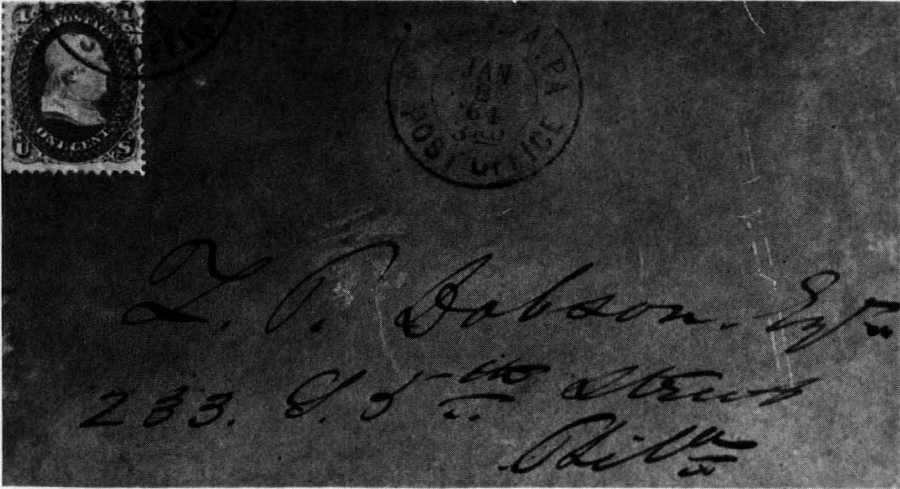 POSTAGE
ONE CENT
U S
A. PA
JAN
61
330
POST OFFICE
T. P. Dobson. Esqr.
233. S. 5th Street
Phila